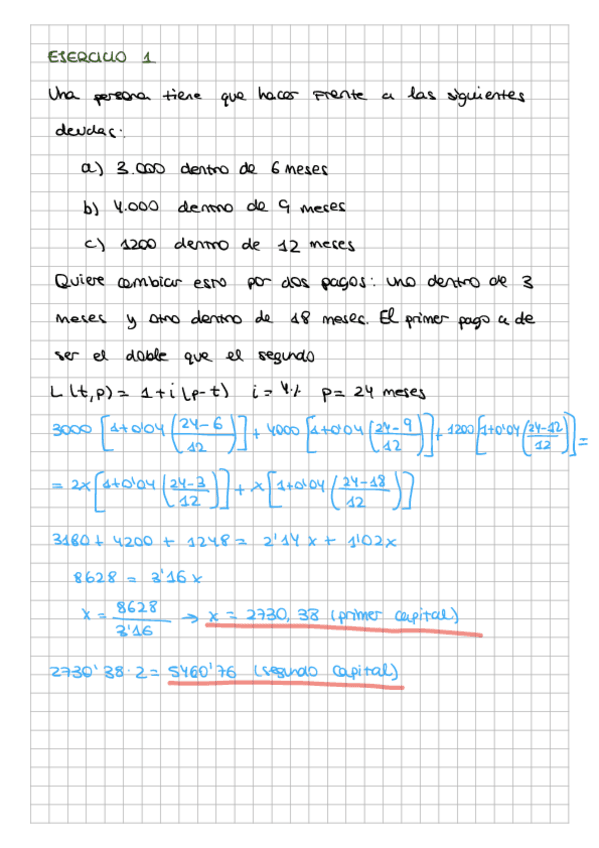 EJERCICIO 1
Una persona tiene que hacer frente a las siguientes
deudas:
a) 3.000 dentro de 6 meses
b) 4.000 dentro de 9 meses
c) 1200 dentro de 12 meses
Quiere cambiar esto por dos pagos: uno dentro de 3
meses y otro dentro de 18 meses. El primer pago a de
ser el doble que el segundo
L(t,p) = 1+i(p-t) i = 4% p= 24 meses
3000 [1+0'04 (24-6/12)] + 4000 [1+0'04 (24-9/12)] + 1200 [1+0'04 (24-12/12)] =
= 2x [1+0'04 (24-3/12)] + x [1+0'04 (24-18/12)]
3180 + 4200 + 1248 = 2'14 x + 1'02x
8628 = 3'16 x
x = 8628/3'16 → x = 2730,38 (primer capital)
2730'38·2 = 5460'76 (segundo capital)